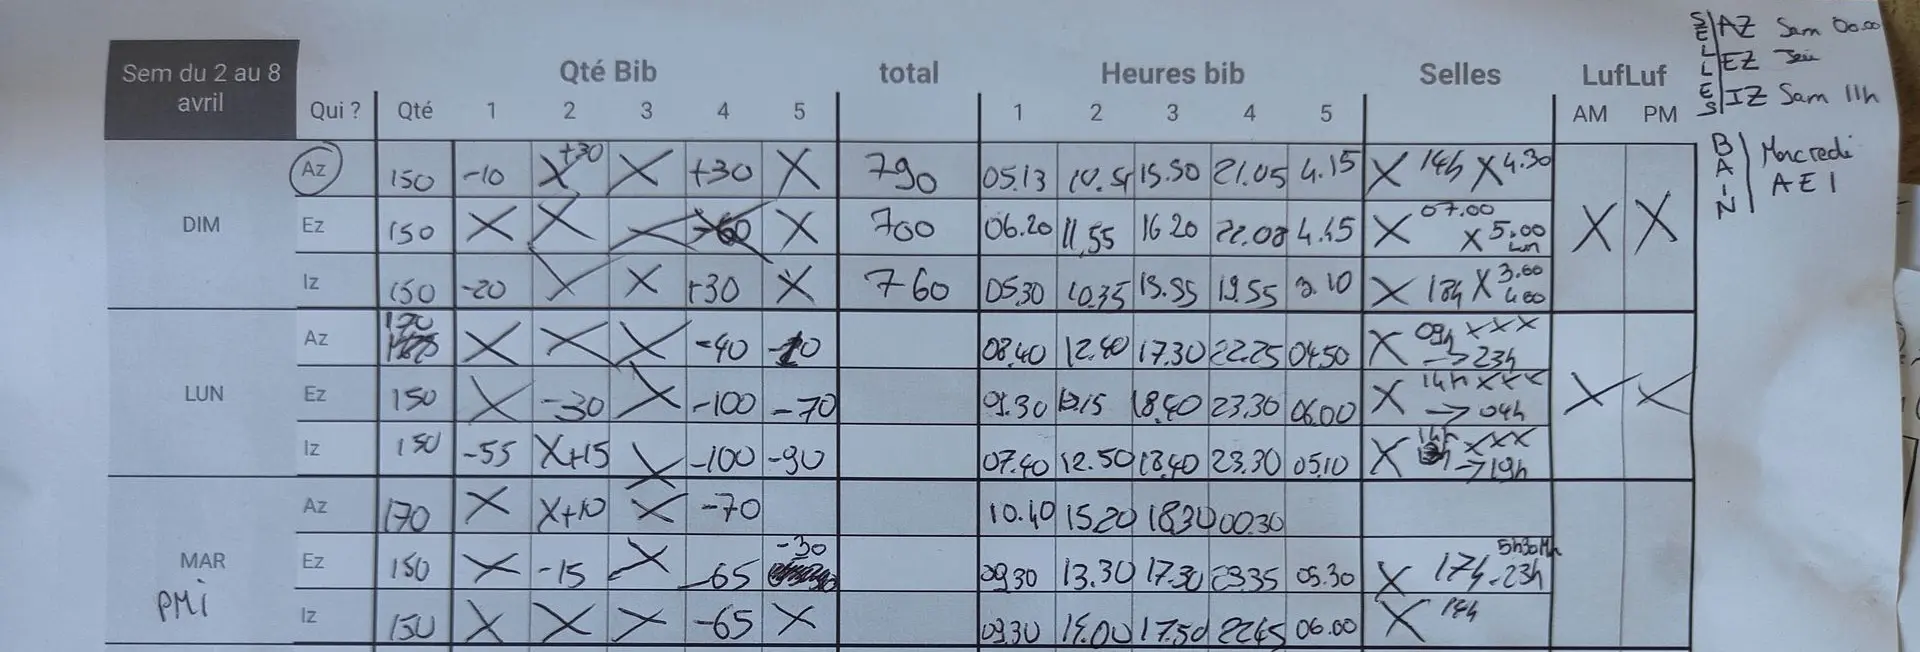 Sem du 2 au 8 avril Qté Bib total Heures bib Selles LufLuf
Qui ? Qté 1 2 3 4 5 1 2 3 4 5 AM PM
SELLES AZ Sam 00.00
EZ Jeu
IZ Sam 11h
BAIN Mercredi
A E I
DIM
Az 150 -10 X+30 X +30 X 790 05.13 15.50 21.05 4.15 X 14h X 4.30 X X
Ez 150 X X X 700 06.20 11.55 16 20 22.08 4.45 X 07.00 X 5.00 Lun
Iz 150 -20 X X +30 X 760 05.30 10.35 19.55 X 18h X 3.00
LUN
Az 170 X X X -40 08.40 12.40 17.30 22.25 04.50 X 09h XXX → 23h X X
Ez 150 X -30 X -100 -70 09.30 18.40 23.30 06.00 X 14h XXX → 04h
Iz 150 -55 X+15 X -100 -90 07.40 12.50 18.40 23.30 05.10 X XXX → 19h
MAR
PMI
Az 170 X X+10 X -70 10.40 15.20 18.30 00.30
Ez 150 X -15 X -65 -30 09.30 13.30 17.30 05.30 X 17h-23h
Iz 150 X X X -65 X 09.30 17.50 22.45 06.00 X